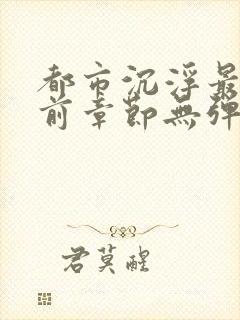 都市沉浮最
前章節無彈
君莫醒